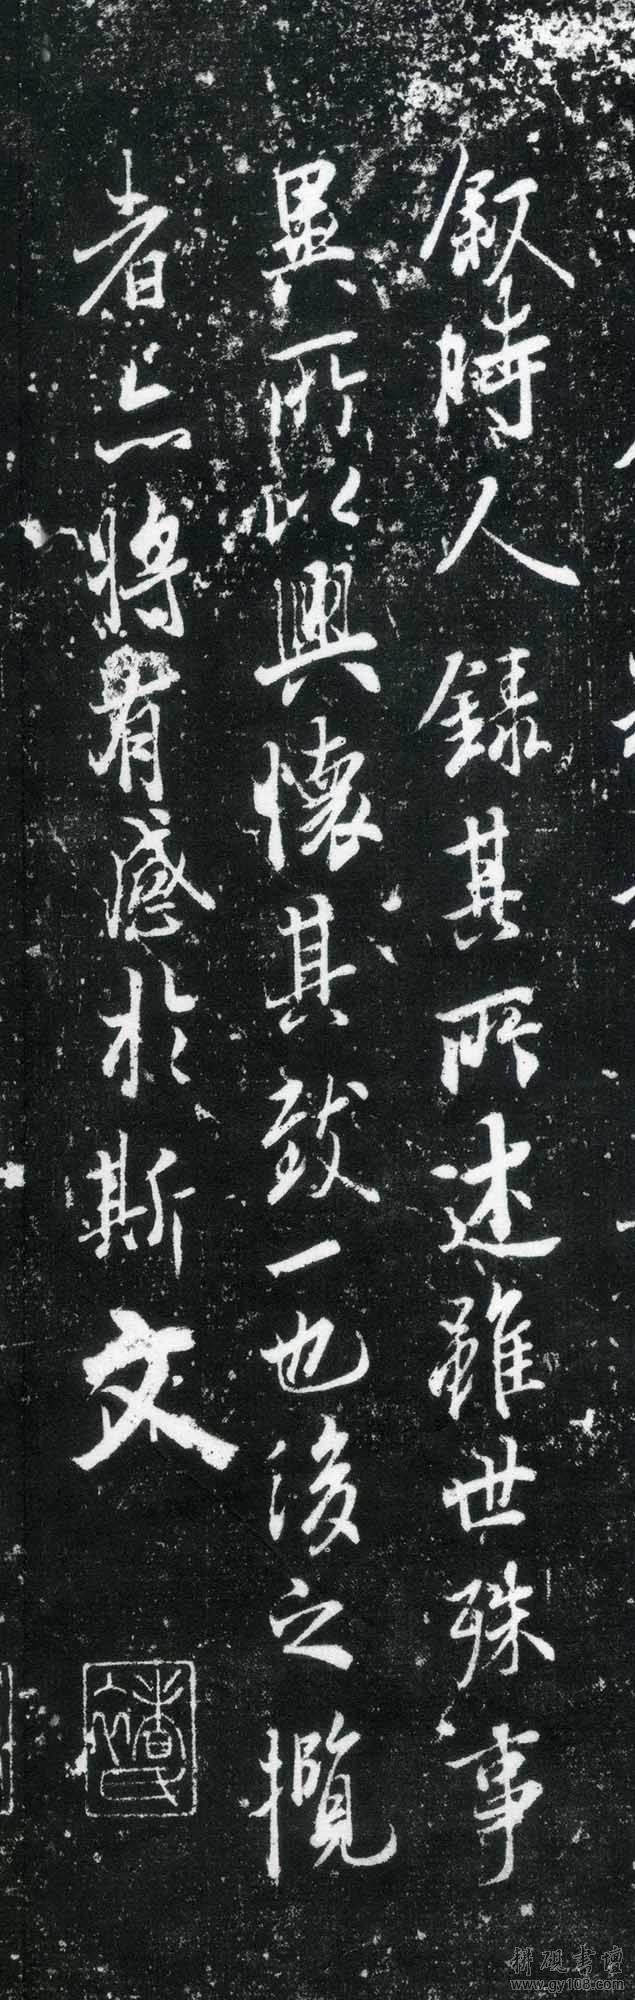 叙時人錄其所述雖世殊事
異所以興懷其致一也後之攬
者亦將有感於斯文
耕硯書壇
www.gy108.com